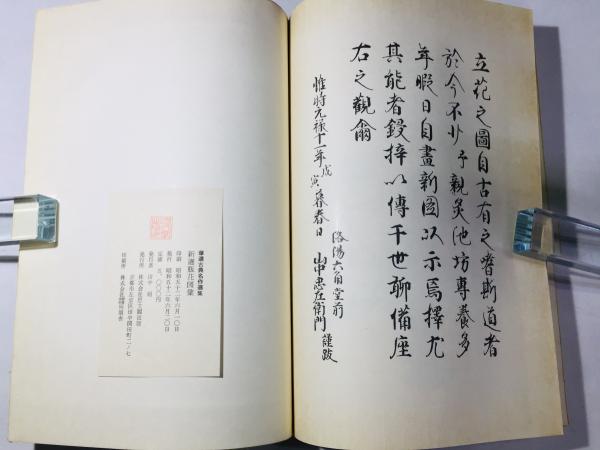 立花之圖自古有之嗜斯道者
於今不少予親炙池坊專養多
年暇日自畫新圖以示焉擇尤
其能者鋟梓以傳千世聊備座
右之觀翕
惟時元禄十一年戊寅暮春日
洛陽六角堂前
山中忠左衛門謹跋
華道古典名作選集
新選瓶花図彙
印刷 昭和五十二年六月一〇日
発行 昭和五十二年六月二〇日
定価 五、〇〇〇円